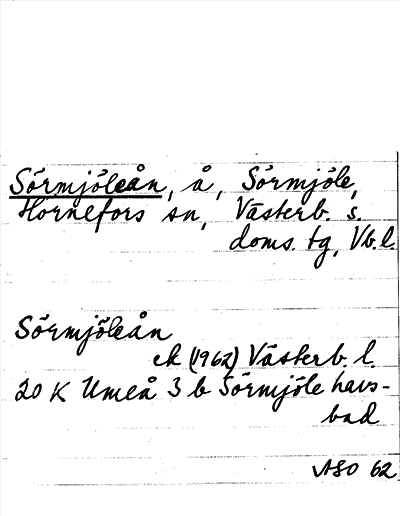 Sörmjöleån, å, Sörmjöle,
Hörnefors sn, Västerb. s.
doms. tg, Vb.l.
Sörmjöleån
ek (1962) Västerb. l.
20 K Umeå 3 b Sörmjöle havs-
bad
ASO 62